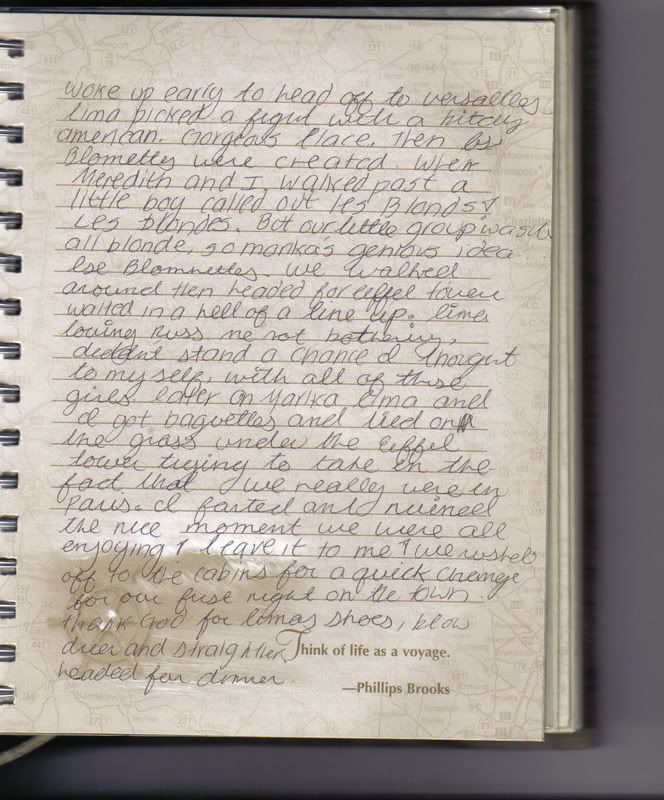 woke up early to head off to versailles
lima picked a fight with a bitchy
american. Gorgeous Place. Then
Blometts were created. When
Meredith and I, walked past a
little boy called out Les Blonds &
Les Blondes. But our little group wasnt
all blonde, so marika's genious idea
we walked
around then headed for eiffel tower
waited in a hell of a line up. lima
loving Russ me not bothering,
diddnt stand a chance I thought
to myself, with all of those
girls. Later on Marika lima and
I got baguettes and lied on
the grass under the Eiffel
tower trying to take in the
fact that we really were in
Paris. I farted and ruined
the nice moment we were all
enjoying, leave it to me! we rushed
off to the cabins for a quick change
for our first night on the town.
Thank God for limas shoes, blow
drier and straightner,
headed for dinner.
Think of life as a voyage.
—Phillips Brooks